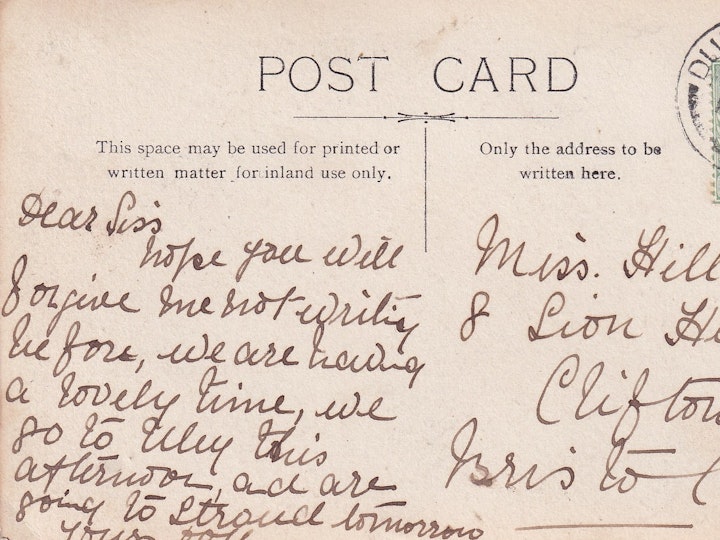 POST CARD
This space may be used for printed or
written matter for inland use only.
Only the address to be
written here.
DU
Dear Siss
hope you will
forgive me not writing
before, we are having
a lovely time, we
go to Uley this
afternoon, and are
going to Stroud tomorrow
Yours
Miss. Hill
8 Sion
Clifton
Bristol